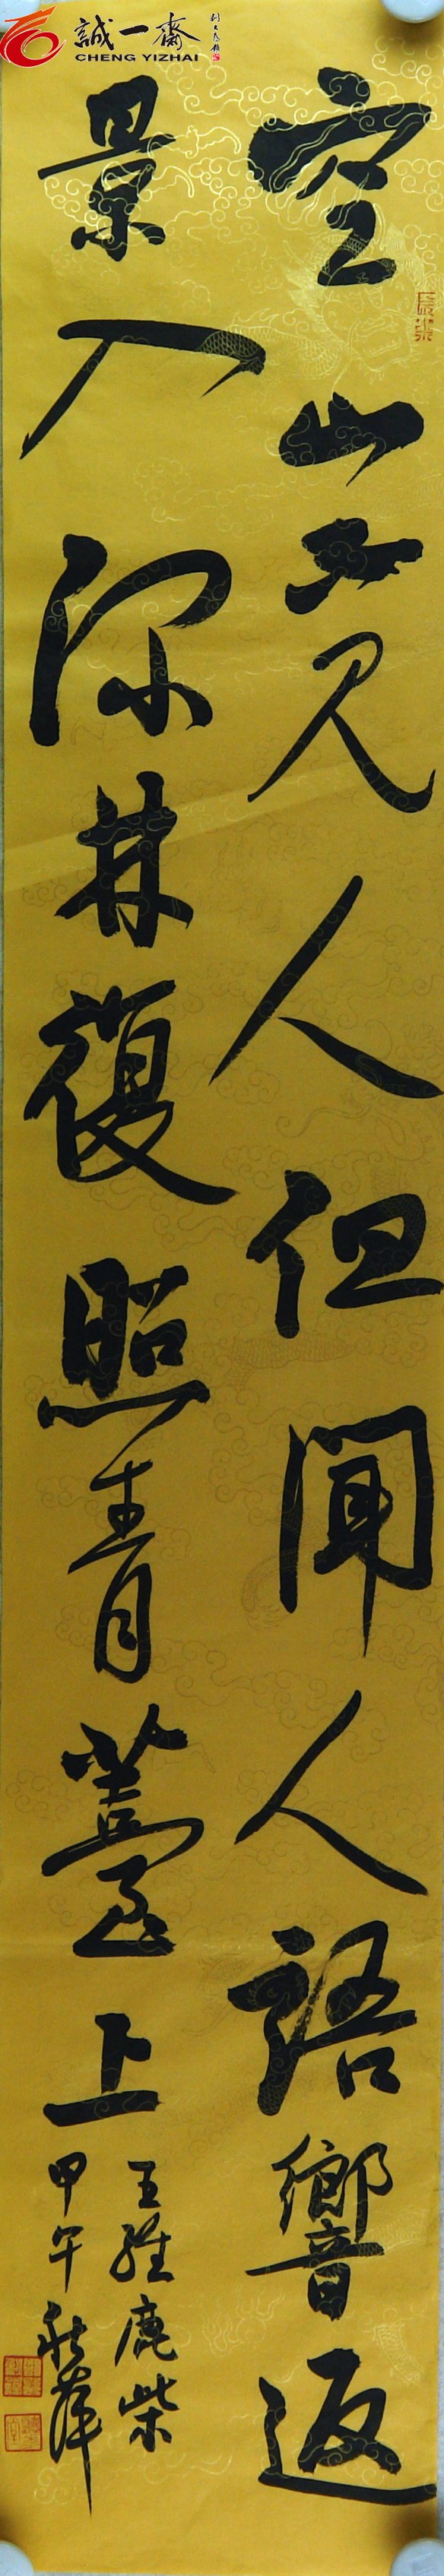 誠一齋
CHENG YIZHAI
空山不見人但聞人語響返
景入深林復照青薹上
王維鹿柴
甲午秋